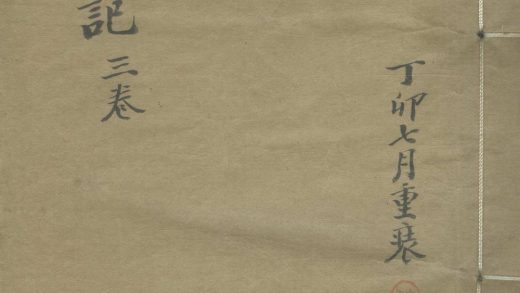 丁卯七月重裝
記三卷